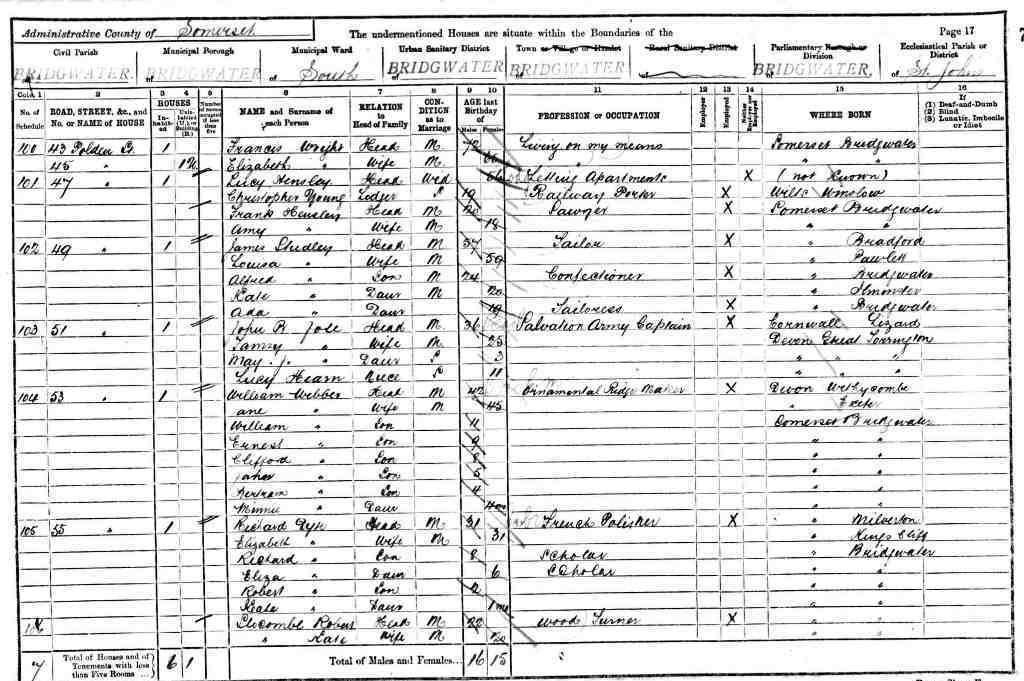 Administrative County of Somerset The undermentioned Houses are situate within the Boundaries of the Page 17
Civil Parish Municipal Borough Municipal Ward Urban Sanitary District Town or Village or Hamlet Rural Sanitary District Parliamentary Borough or Division Ecclesiastical Parish or District
BRIDGWATER. of BRIDGWATER of South of BRIDGWATER of BRIDGWATER of of BRIDGWATER, of St. John's
Cols. 1 2 3 4 5 6 7 8 9 10 11 12 13 14 15 16
No. of Schedule ROAD, STREET, &c., and No. or NAME of HOUSE HOUSES Inhabited Uninhabited (U.) or Building (B.) Number of rooms occupied if less than five NAME and Surname of each Person RELATION to Head of Family CONDITION as to Marriage AGE last Birthday of Males Females PROFESSION or OCCUPATION Employer Employed Neither Employer nor Employed WHERE BORN If (1) Deaf-and-Dumb (2) Blind (3) Lunatic, Imbecile or Idiot
100 43 Polden St. 1 Francis Wright Head M 72 Living on my means Somerset Bridgwater
45 " 1 U Elizabeth " Wife M " " "
101 47 " 1 Lucy Hensley Head Wid 56 Letting Apartments X (not known)
Christopher Young Lodger S 19 Railway Porter X Wilts Winslow
Frank Hensley Head M Sawyer X Somerset Bridgwater
Amy " Wife M 18 " "
102 49 " 1 James Studley Head M 57 Tailor X " Bradford
Louisa " Wife M 50 " Pawlett
Alfred " Son M 24 Confectioner X " Bridgwater
Kate " Daur M 20 " Ilminster
Ada " Daur 19 Tailoress X " Bridgwater
103 51 " 1 John R. Jose Head M 36 Salvation Army Captain X Cornwall Lizard
" Wife M 25 Devon Great Torrington
May J. " Daur S 3 " " "
Lucy Hearn Niece S 11 " " "
104 53 " 1 William Webber Head M 42 Ornamental Ridge Maker X Devon Withycombe
Jane " Wife M 45 " Exeter
William " Son 11 Somerset Bridgwater
Ernest " Son 9 " "
Clifford " Son 8 " "
James " Son 5 " "
Bertram " Son 4 " "
Minnie " Daur " "
105 55 " 1 Richard Dyer Head M 31 French Polisher X " Milverton
Elizabeth " Wife M 31 " Kings Cliff
Richard " Son 8 Scholar " Bridgwater
Eliza " Daur 6 Scholar " "
Robert " Son 2 " "
Kate " Daur 1 mo " "
106 Slocombe Robert Head M 22 Wood Turner X " "
" Kate Wife M 20 " "
7 Total of Houses and of Tenements with less than Five Rooms ... 6 1 Total of Males and Females... 16 15